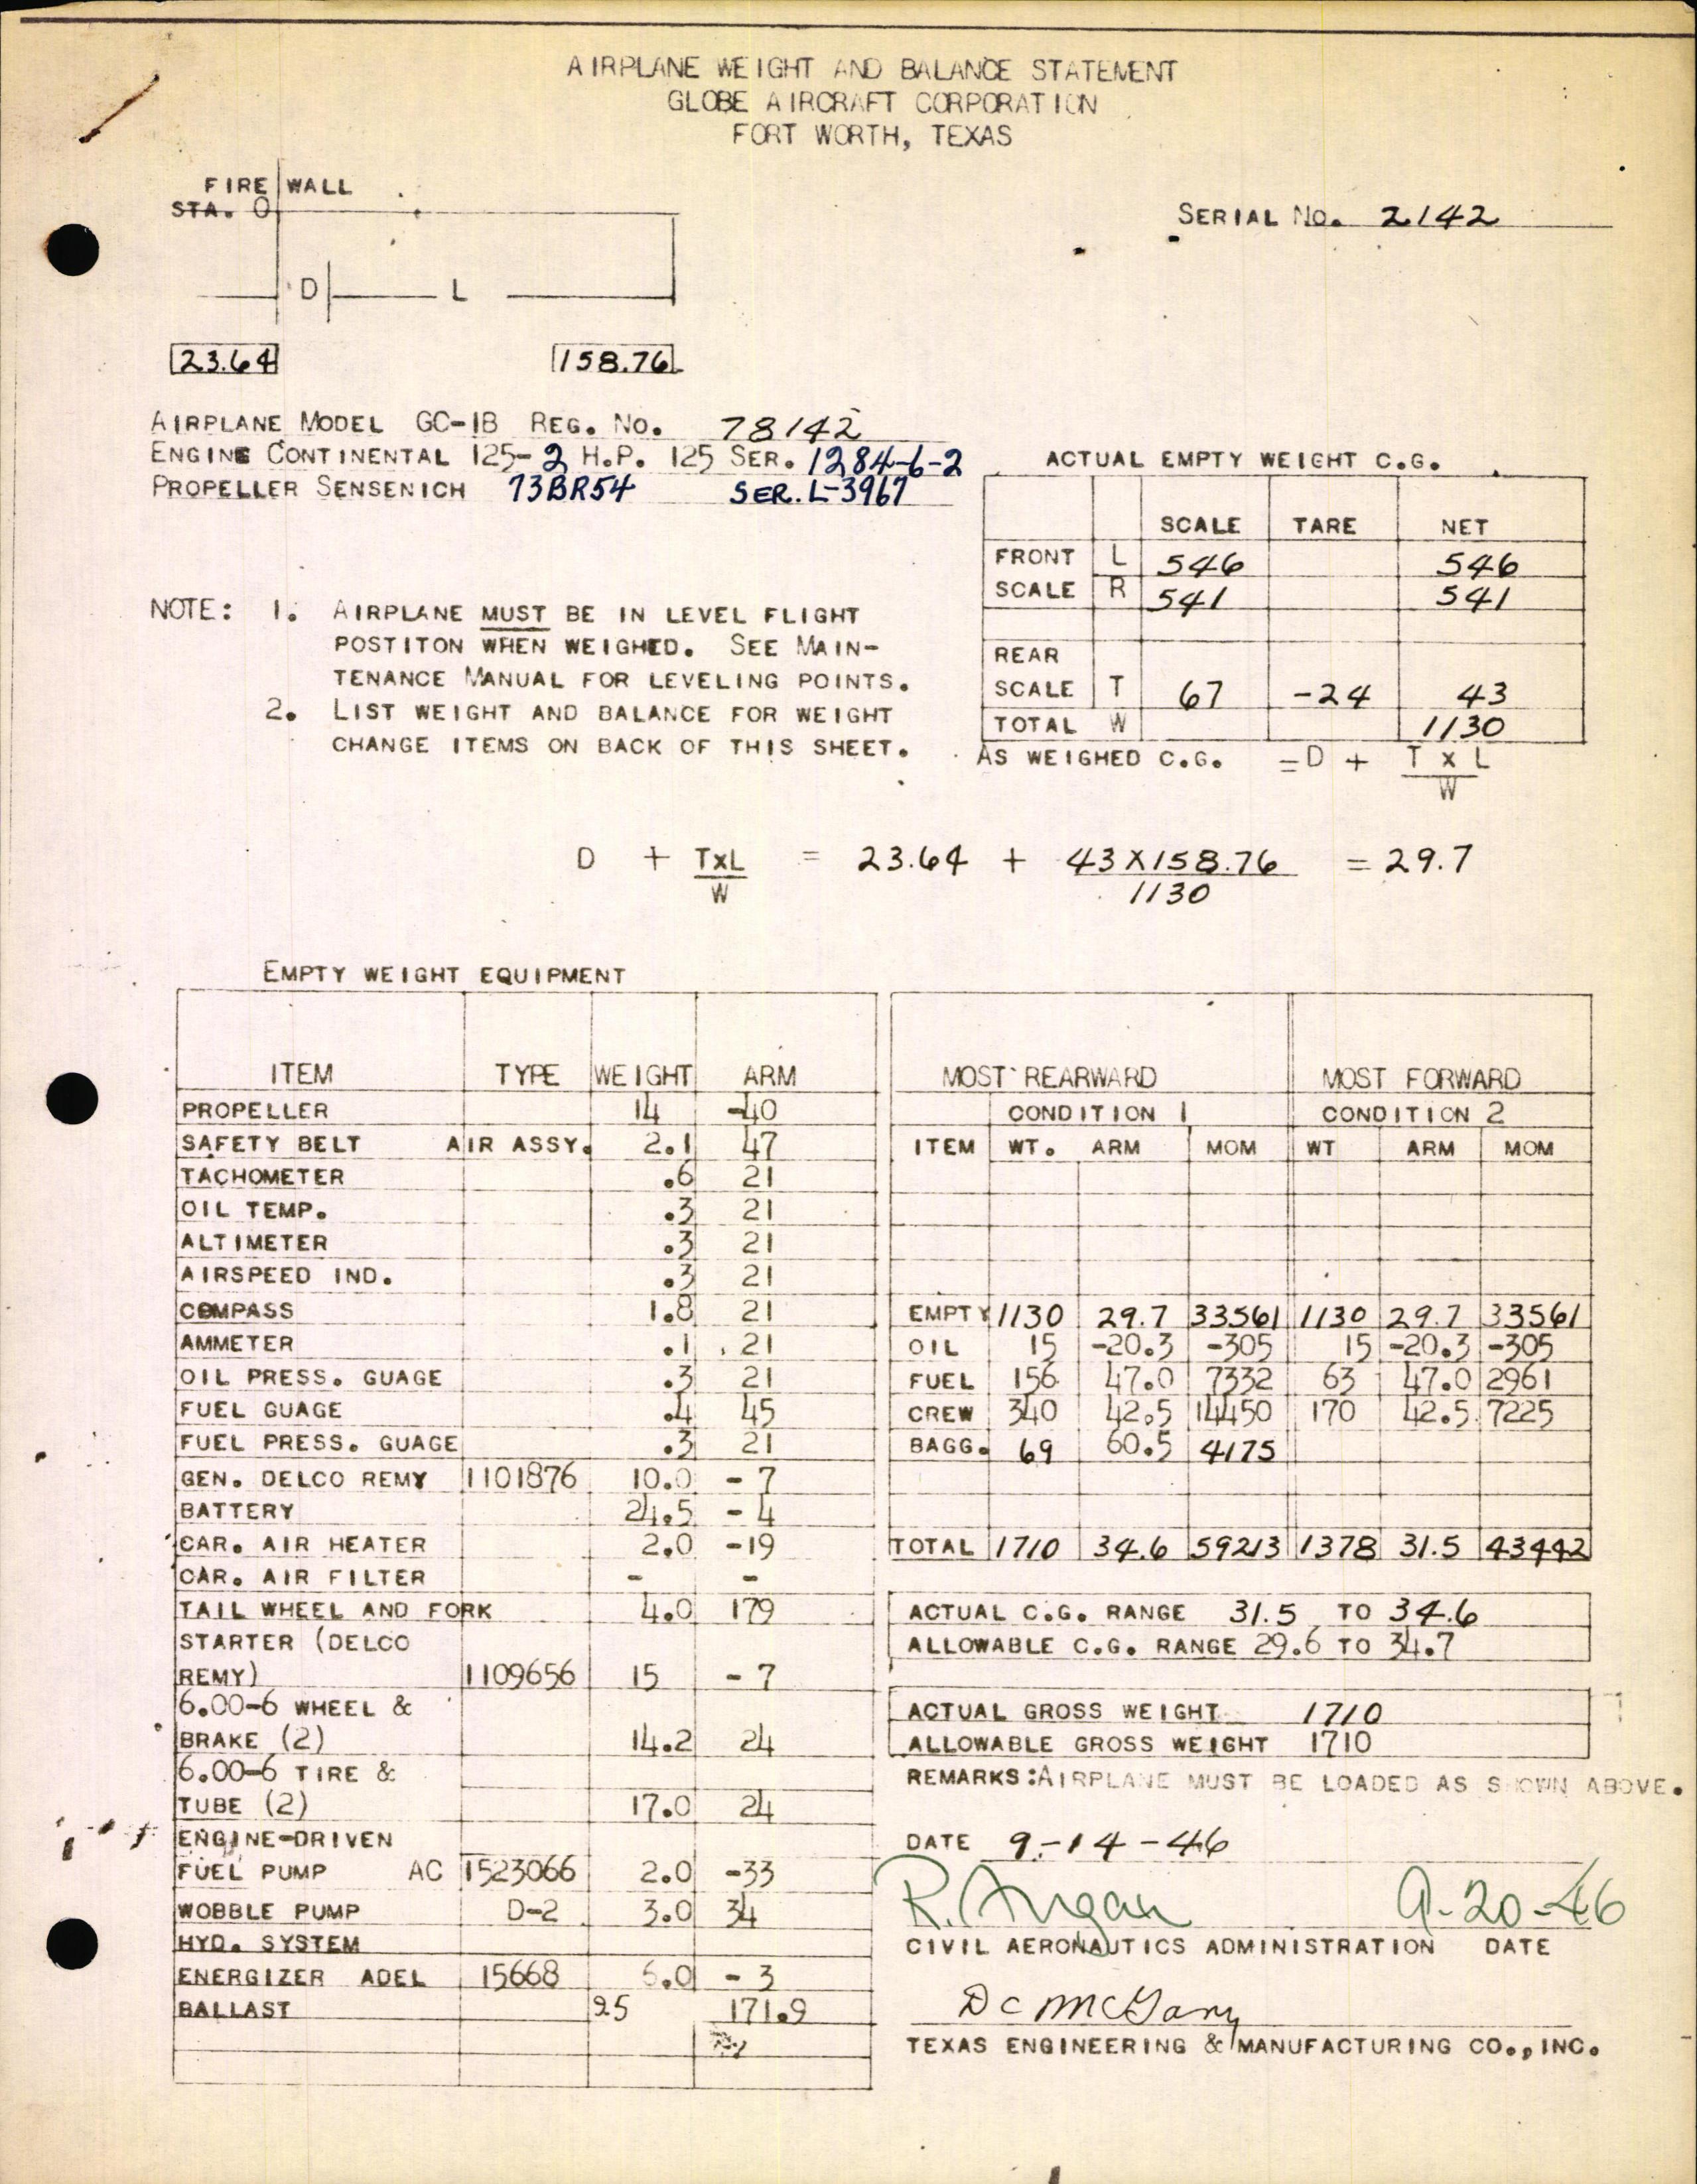 AIRPLANE WEIGHT AND BALANCE STATEMENT
GLOBE AIRCRAFT CORPORATION
FORT WORTH, TEXAS
FIRE WALL
STA. O
SERIAL NO. 2142
D L
23.64 158.76
AIRPLANE MODEL GC-1B REG. NO. 78142
ENGINE CONTINENTAL 125-2 H.P. 125 SER. 1284-6-2
PROPELLER SENSENICH 73BR54 SER. L-3967
ACTUAL EMPTY WEIGHT C.G.
SCALE TARE NET
FRONT L 546 546
SCALE R 541 541
REAR
SCALE T 67 -24 43
TOTAL W 1130
AS WEIGHED C.G. =D + T X L
W
NOTE: 1. AIRPLANE MUST BE IN LEVEL FLIGHT
POSTITON WHEN WEIGHED. SEE MAIN-
TENANCE MANUAL FOR LEVELING POINTS.
2. LIST WEIGHT AND BALANCE FOR WEIGHT
CHANGE ITEMS ON BACK OF THIS SHEET.
D + TxL = 23.64 + 43 X 158.76 = 29.7
W 1130
EMPTY WEIGHT EQUIPMENT
ITEM TYPE WEIGHT ARM
PROPELLER 14 -40
SAFETY BELT AIR ASSY. 2.1 47
TACHOMETER .6 21
OIL TEMP. .3 21
ALTIMETER .3 21
AIRSPEED IND. .3 21
COMPASS 1.8 21
AMMETER .1 21
OIL PRESS. GUAGE .3 21
FUEL GUAGE .4 45
FUEL PRESS. GUAGE .3 21
GEN. DELCO REMY 1101876 10.0 - 7
BATTERY 24.5 - 4
CAR. AIR HEATER 2.0 -19
CAR. AIR FILTER - -
TAIL WHEEL AND FORK 4.0 179
STARTER (DELCO
REMY) 1109656 15 - 7
6.00-6 WHEEL &
BRAKE (2) 14.2 24
6.00-6 TIRE &
TUBE (2) 17.0 24
ENGINE-DRIVEN
FUEL PUMP AC 1523066 2.0 -33
WOBBLE PUMP D-2 3.0 34
HYD. SYSTEM
ENERGIZER ADEL 15668 6.0 - 3
BALLAST 25 171.9
MOST REARWARD MOST FORWARD
CONDITION 1 CONDITION 2
ITEM WT. ARM MOM WT ARM MOM
EMPTY 1130 29.7 33561 1130 29.7 33561
OIL 15 -20.3 -305 15 -20.3 -305
FUEL 156 47.0 7332 63 47.0 2961
CREW 340 42.5 14450 170 42.5 7225
BAGG. 69 60.5 4175
TOTAL 1710 34.6 59213 1378 31.5 43442
ACTUAL C.G. RANGE 31.5 TO 34.6
ALLOWABLE C.G. RANGE 29.6 TO 34.7
ACTUAL GROSS WEIGHT 1710
ALLOWABLE GROSS WEIGHT 1710
REMARKS: AIRPLANE MUST BE LOADED AS SHOWN ABOVE.
DATE 9-14-46
R. 9-20-46
CIVIL AERONAUTICS ADMINISTRATION DATE
DC McGary
TEXAS ENGINEERING & MANUFACTURING CO., INC.